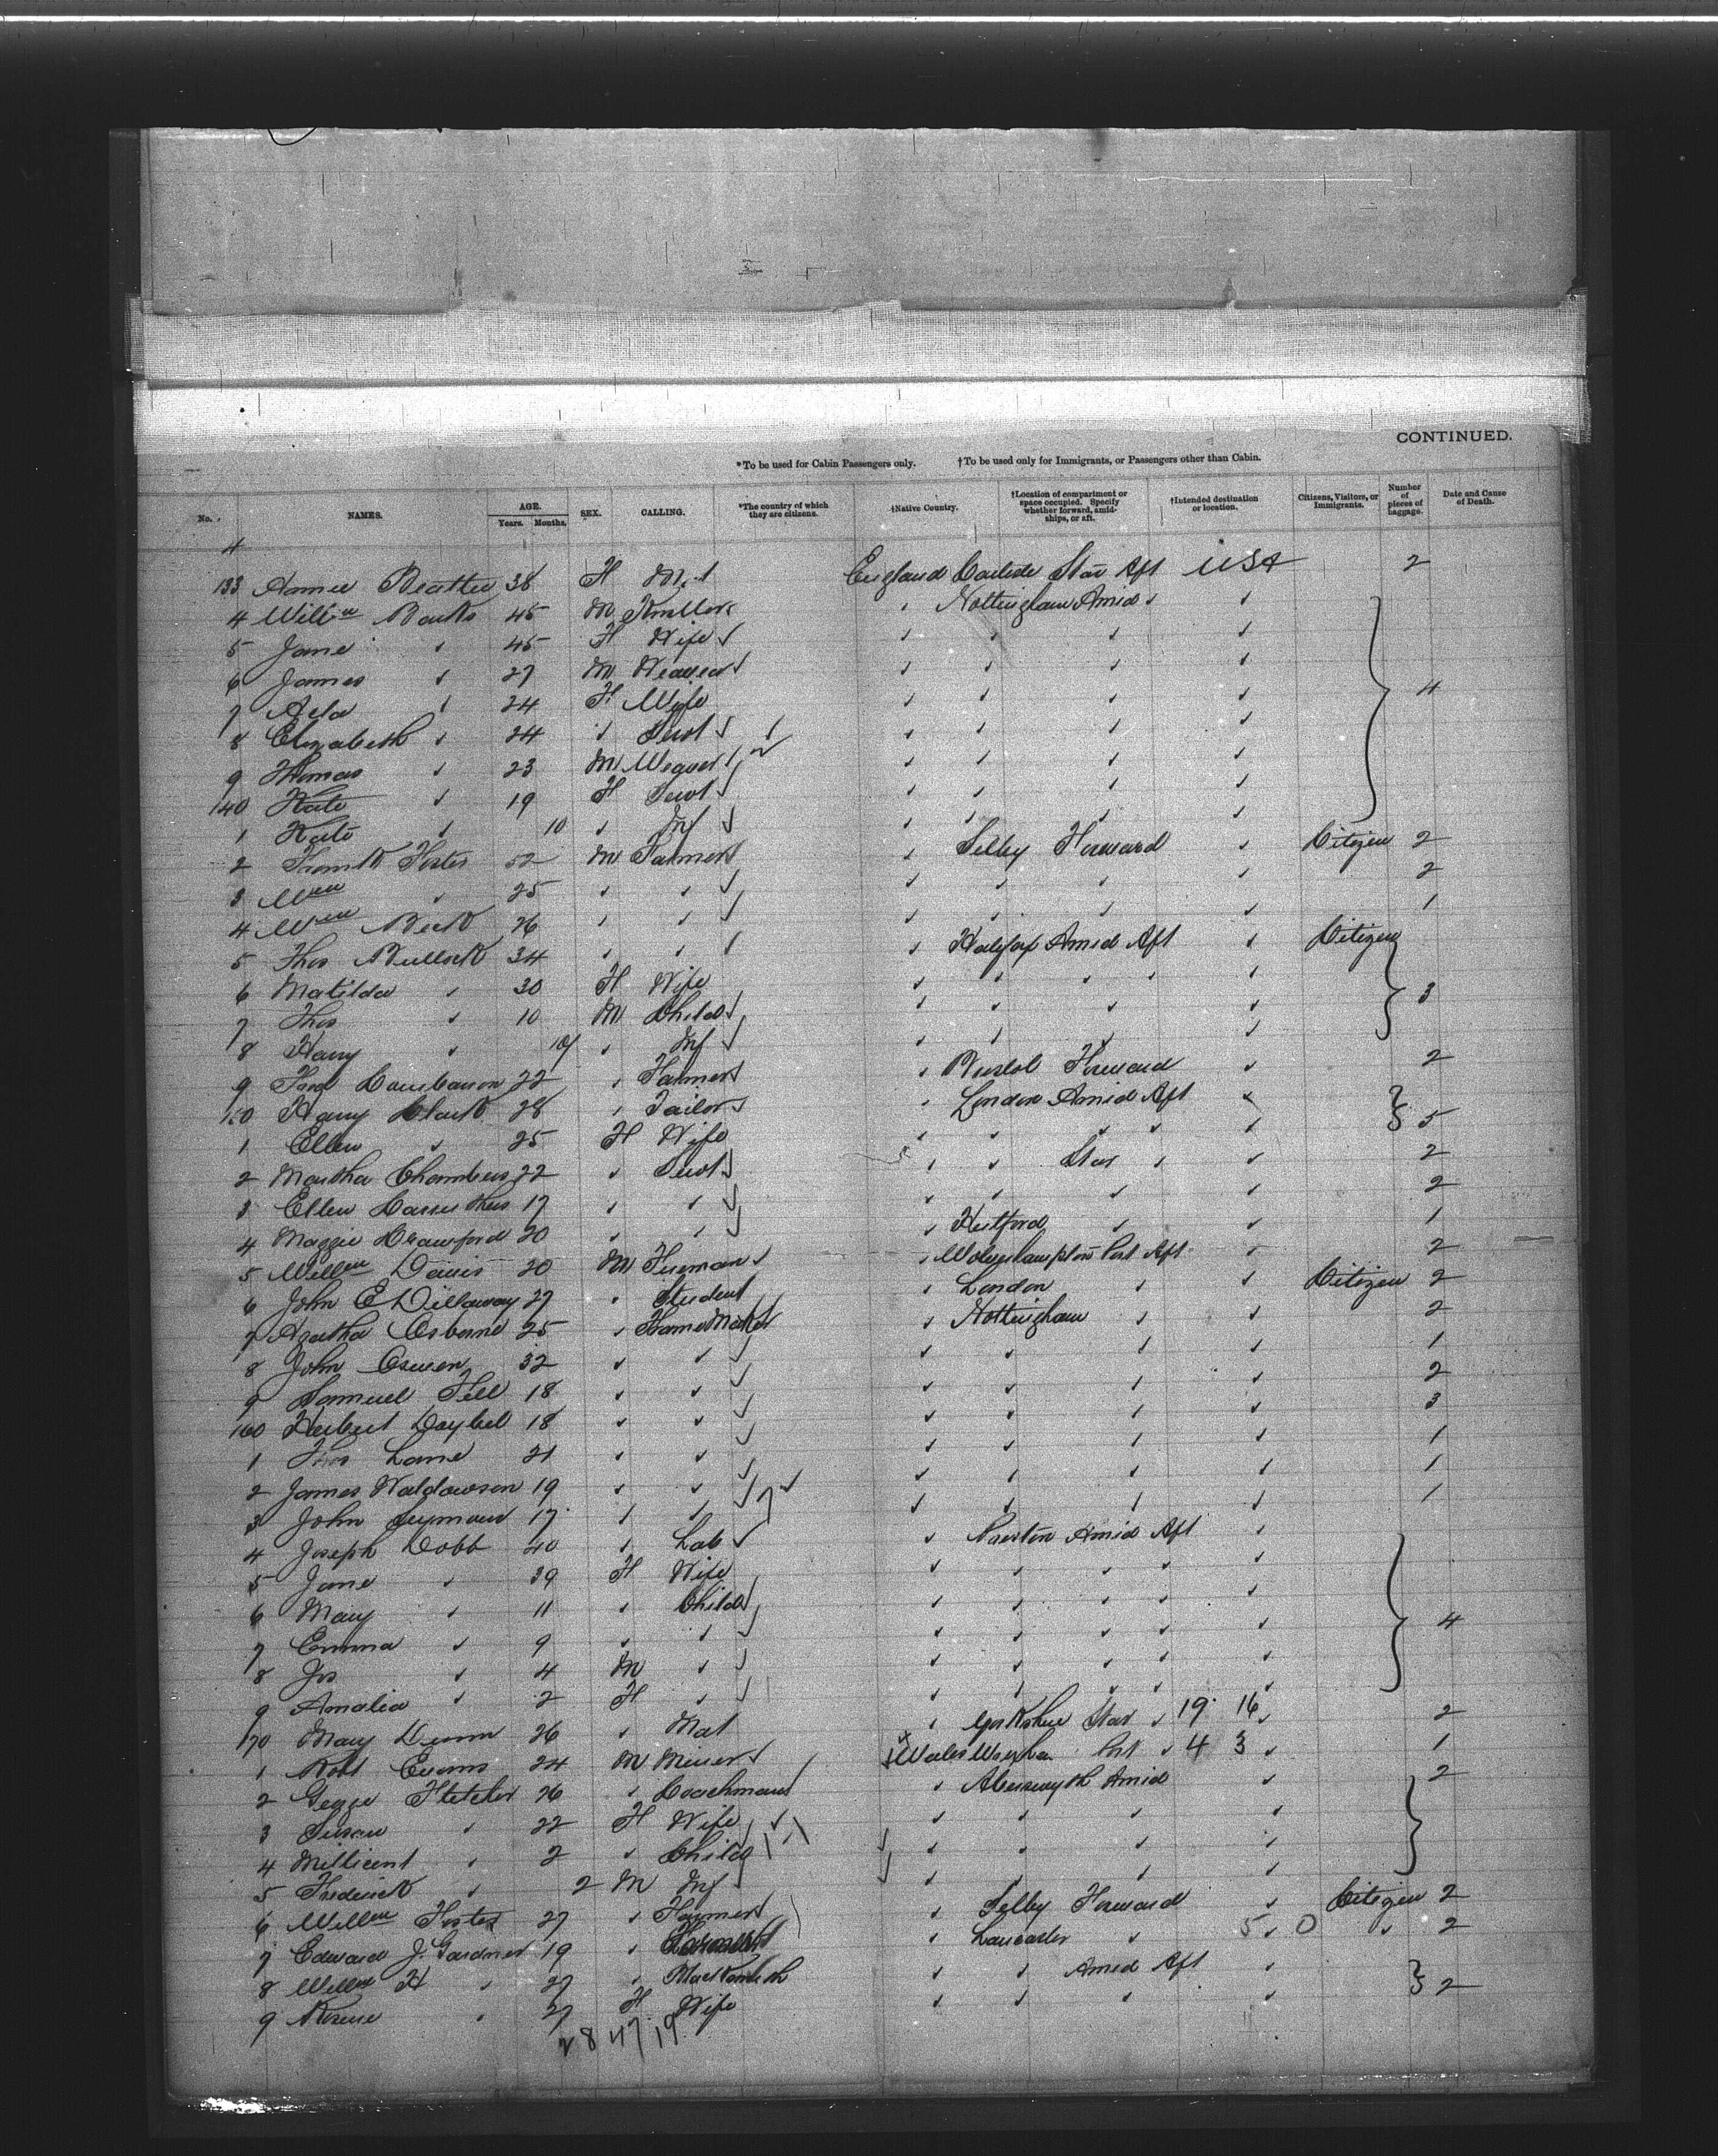 CONTINUED.
*To be used for Cabin Passengers only. †To be used only for Immigrants, or Passengers other than Cabin.
No. NAMES. AGE. Years. Months. SEX. CALLING. *The country of which they are citizens. †Native Country. †Location of compartment or space occupied. Specify whether forward, amidships, or aft. †Intended destination or location. Citizens, Visitors, or Immigrants. Number of pieces of baggage. Date and Cause of Death.
4
133 Annie Beattie 38 F England Aft USA 2
4 Willm Banks 45 M Nottingham Amid
5 Jane " 45 F Wife
6 James " 27 M Weaver
7 Ada " 24 F Wife 4
8 Elizabeth " 24 " Servt
9 Thomas " 23 M Weaver
140 Kate " 19 F Servt
1 Kate " 10 " Inf
2 Frank Foster 52 M Farmer " Selby Forward " Citizen 2
3 Wm " 25 " " 2
4 Wm Beck 26 " " 1
5 Thos Bullock 34 " " " Halifax Amid Aft " Citizen
6 Matilda " 30 F Wife
7 Thos " 10 M Child 3
8 Harry " 10 " Inf
9 Fred 22 " Farmer " Bristol Forward " 2
150 Harry Clark 28 " Tailor " London Amid Aft "
1 Ellen " 25 F Wife 5
2 Martha Chambers 22 " Servt " " Star " " 2
3 Ellen Carruthers 17 " " 2
4 Maggie Crawford 20 " " " Hertford " " 1
5 Willm Davis 20 M Fireman " Wolverhampton Port Aft " 2
6 John E Dillaway 27 " Student " London " " Citizen 2
7 Agatha Osborne 25 " Frame Maker " Nottingham " " 2
8 John 32 " " 1
9 Samuel Fell 18 " " 2
160 Herbert Daybell 18 " " 3
1 Thos Lane 21 " " 1
2 James Waldowson 19 " " 1
3 John Seymour 17 " " 1
4 Joseph Dobb 40 " Lab " Amid Aft "
5 Jane " 39 F Wife
6 Mary " 11 " Child
7 Emma " 9 " " 4
8 Jos " 4 M "
9 Amalia " 2 F "
170 Mary Dunn 26 " Mat " Yorkshire Star " 19 16 " 2
1 Robt Evans 24 M Miner Wales Port " 4 3 " 1
2 George Fletcher 26 " Coachman " Amid " 2
3 Susan " 22 F Wife
4 Millicent " 2 " Child
5 Frederick " 2 M Inf
6 Willm Foster 27 " Farmer " Selby Forward " Citizen 2
7 Edward J. Gardner 19 " Farmer " Lancaster " 5 0 " 2
8 Willm H " 27 " " " Amid Aft "
9 " 27 F Wife 2
28 47 19